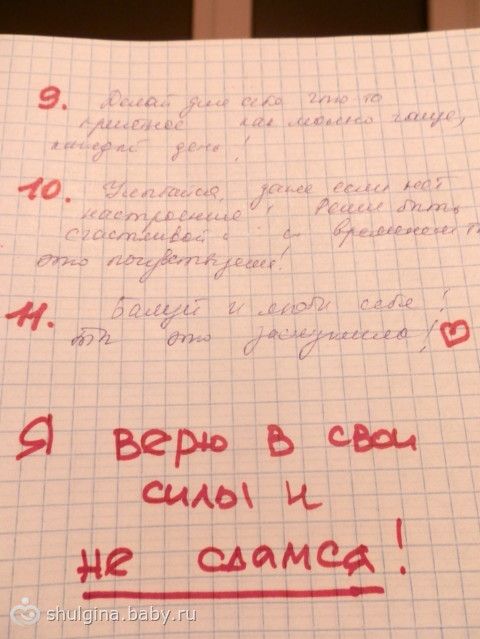 9. Делай для себя что-то
приятное как можно чаще,
каждый день!
10. Улыбайся, даже если нет
настроения! Решай быть
счастливой и со временем ты
это почувствуешь!
11. Балуй и люби себя!
Ты это заслужила!
Я верю в свои
силы и
не сдамся!
shulgina.baby.ru